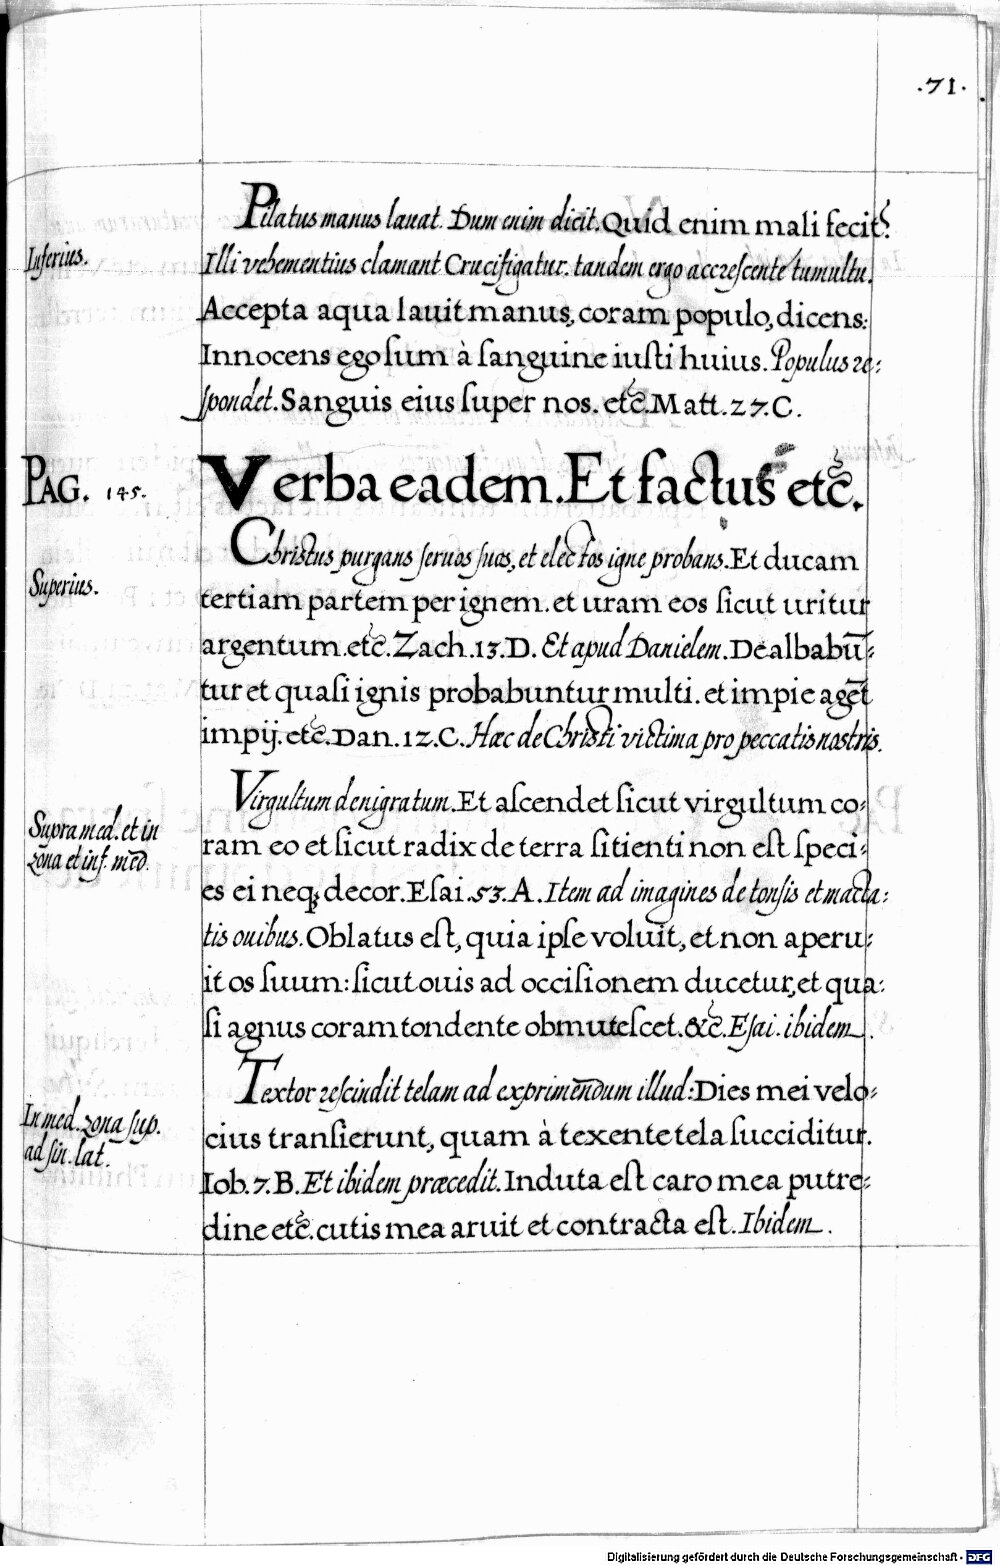 .71.
Pilatus manus lauat. Dum enim dicit. Quid enim mali fecit?
Inferius.
Illi vehementius clamant Crucifigatur. tandem ergo accrescente tumultu.
Accepta aqua lauit manus, coram populo, dicens:
Innocens ego sum à sanguine iusti huius. Populus re:
spondet. Sanguis eius super nos. etc̃. Matt. 27. C.
PAG. 145.
Verba eadem. Et factus etc̃.
Christus purgans seruos suos, et electos igne probans. Et ducam
Superius.
tertiam partem per ignem. et uram eos sicut uritur
argentum. etc̃. Zach. 13. D. Et apud Danielem. Dealbabũ:
tur et quasi ignis probabuntur multi. et impie aget̃
impij. etc̃. Dan. 12. C. Hæc de Christi victima pro peccatis nostris.
Virgultum denigratum. Et ascendet sicut virgultum co:
Supra med. et in
zona et inf. med̃.
ram eo et sicut radix de terra sitienti non est speci:
es ei neq; decor. Esai. 53. A. Item ad imagines de tonsis et macta:
tis ouibus. Oblatus est, quia ipse voluit, et non aperu:
it os suum: sicut ouis ad occisionem ducetur, et qua:
si agnus coram tondente obmutescet. &c̃. Esai. ibidem.
Textor rescindit telam ad exprimẽndum illud: Dies mei velo:
In med. zona sup.
ad sin. lat̃.
cius transierunt, quam à texente tela succiditur.
Iob. 7. B. Et ibidem præcedit. Induta est caro mea putre:
dine etc̃. cutis mea aruit et contracta est. Ibidem.
Digitalisierung gefördert durch die Deutsche Forschungsgemeinschaft - DFG